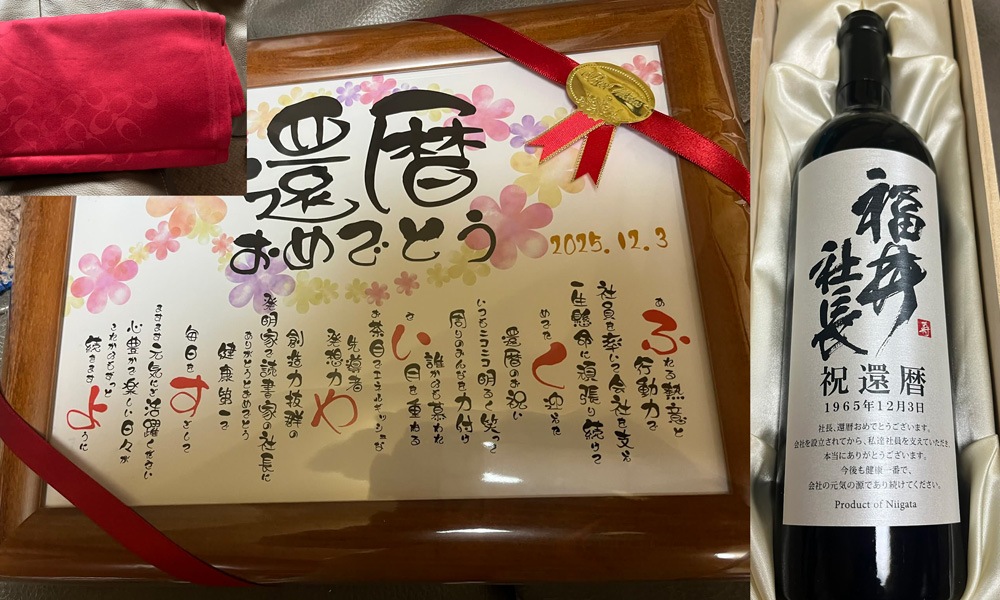 還暦
おめでとう
2025.12.3
あふれる熱意と
行動力で
社員を率いて会社を支え
一生懸命に頑張り続けて
めでたく迎えた
還暦のお祝い
いつもニコニコ明るく笑って
周りのみんなを力付け
誰からも慕われ
い日を重ねる
お茶目でエネルギッシュな
先導者
発想力や
創造力抜群の
発明家で読書家の社長に
ありがとうとおめでとう
健康第一で
毎日をすごして
ますます元気にご活躍ください
心豊かで楽しい日々が
これからもずっと
続きますように
福井
社長
寿
祝還暦
1965年12月3日
社長、還暦おめでとうございます。
会社を設立されてから、私達社員を支えていただき、
本当にありがとうございます。
今後も健康一番で、
会社の元気の源であり続けてください。
Product of Niigata